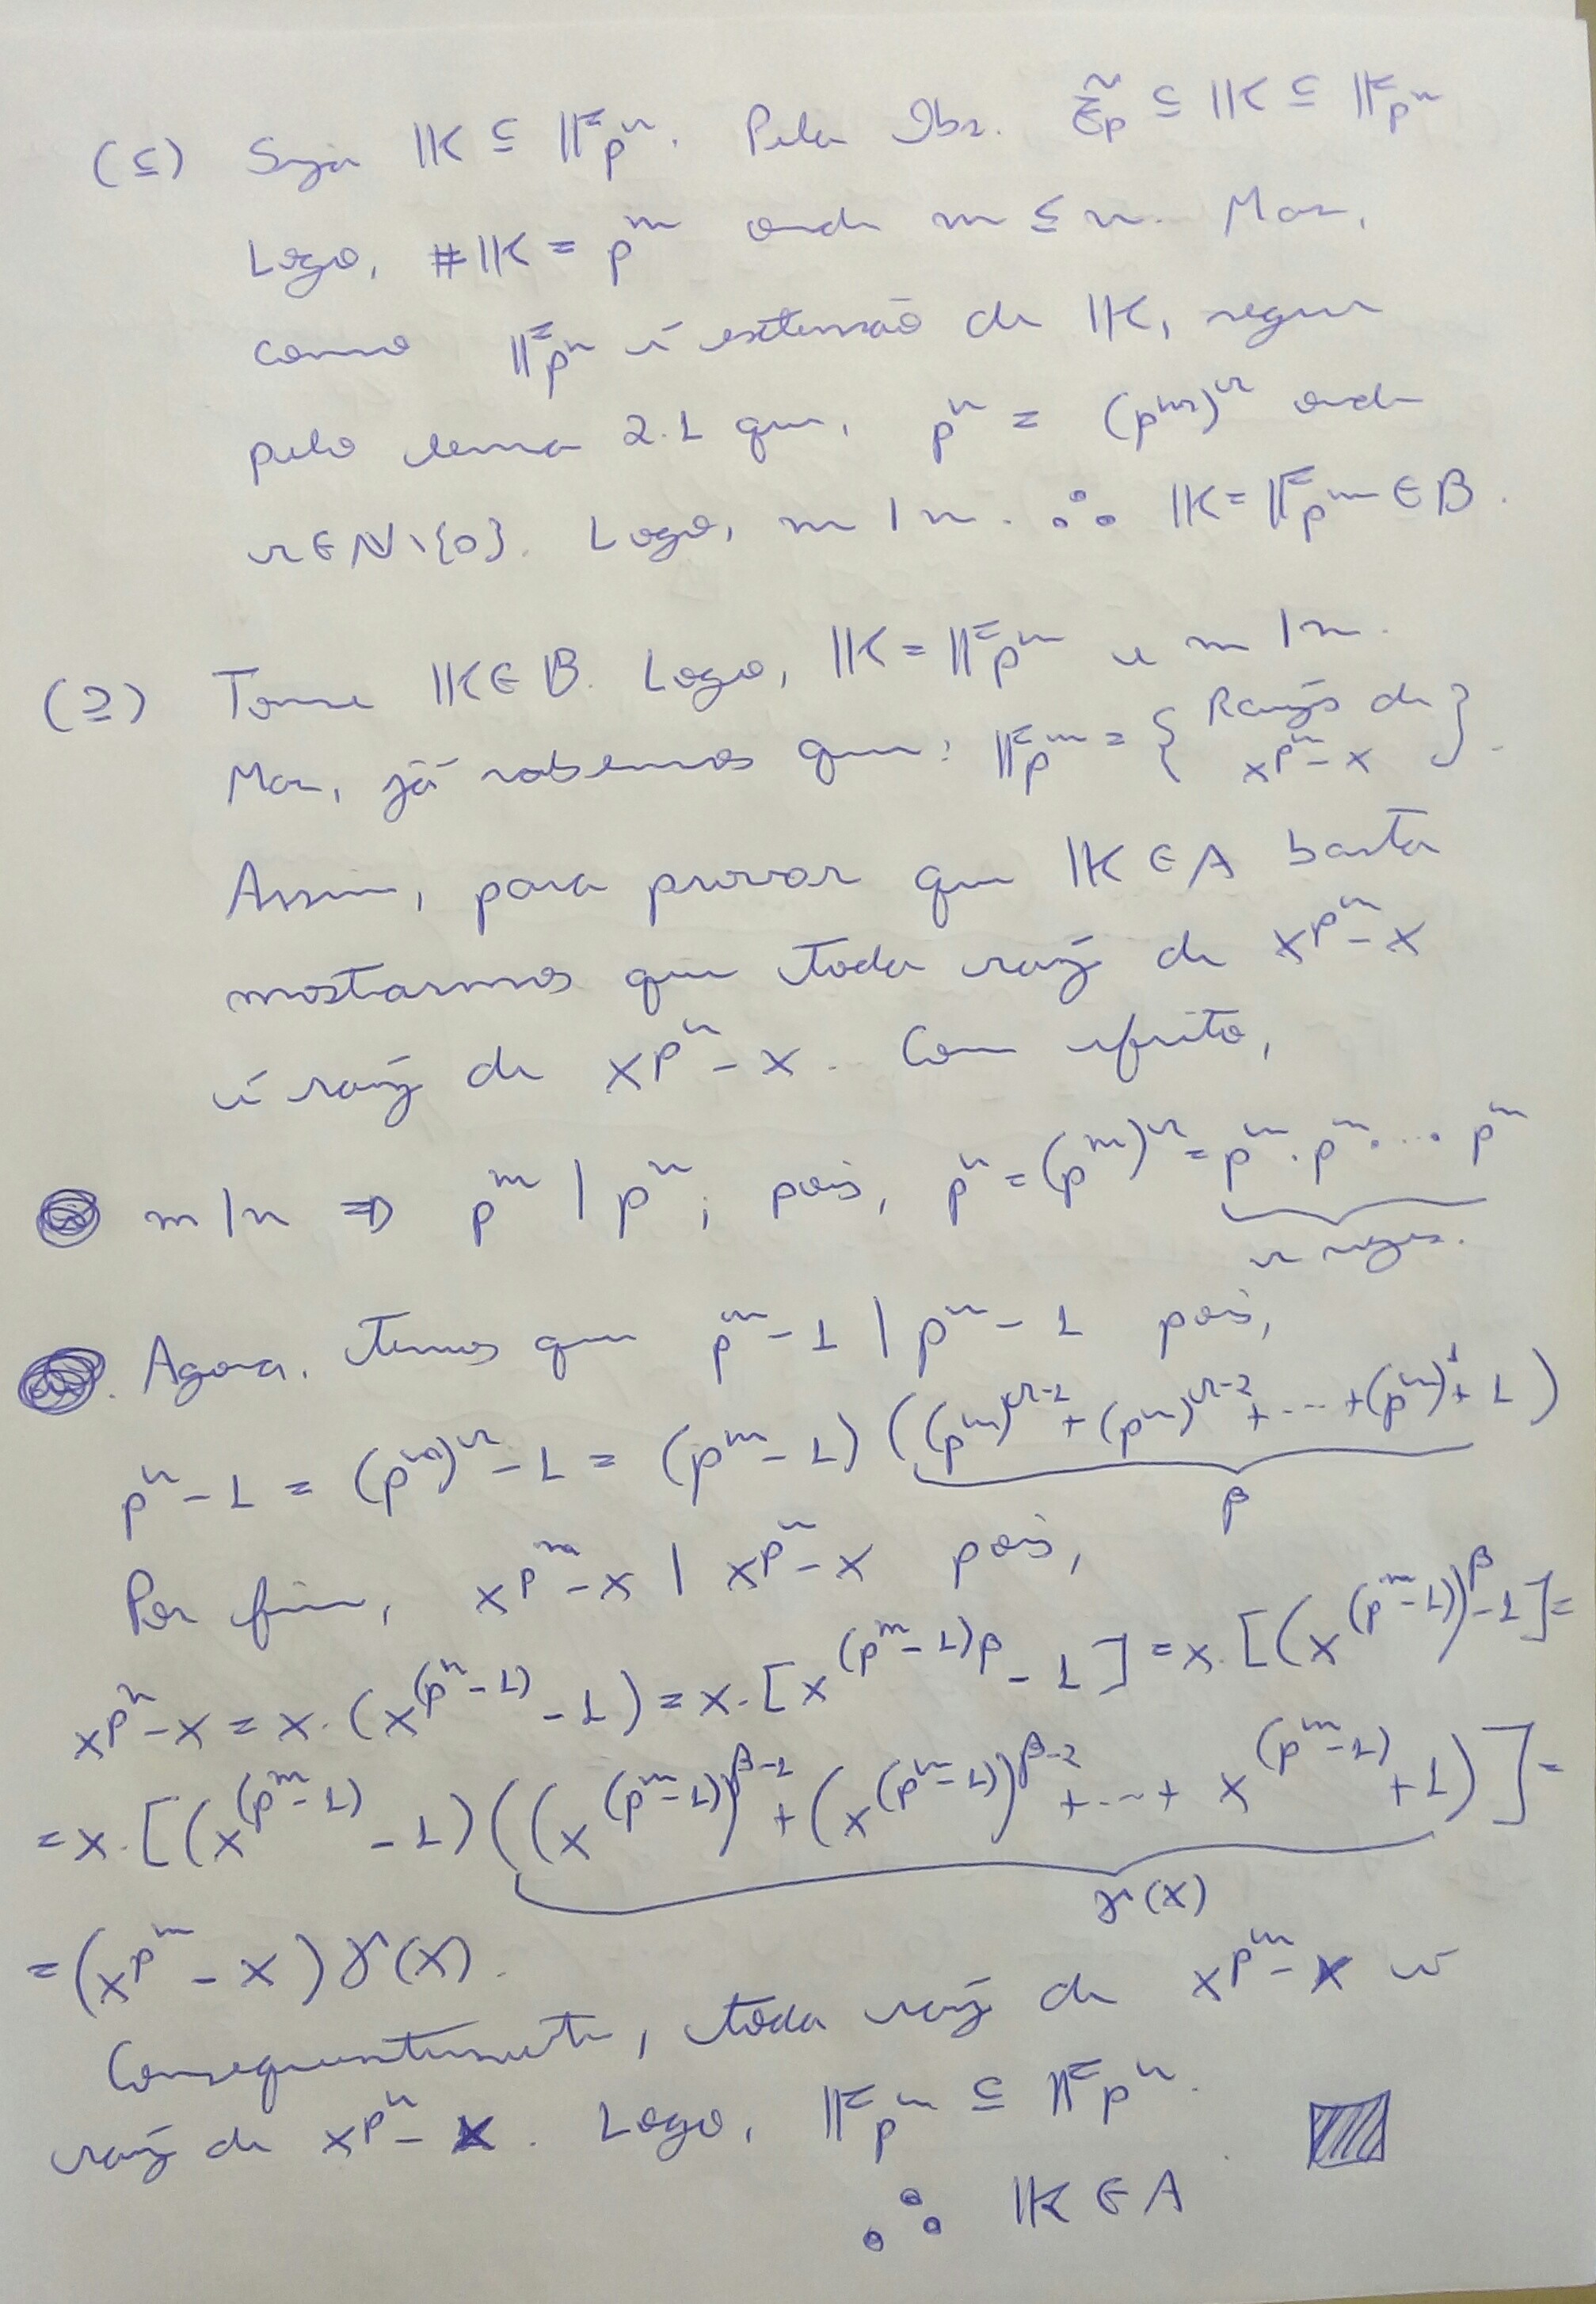 (⊆) Seja 𝕂 ⊆ 𝔽_{p^n}. Pela Obs. ℤ̃_p ⊆ 𝕂 ⊆ 𝔽_{p^n}
Logo, #𝕂 = p^m onde m ≤ n. Mas,
como 𝔽_{p^n} é extensão de 𝕂, segue
pelo lema 2.1 que, p^n = (p^m)^r onde
r ∈ ℕ\{0}. Logo, m | n. ∴ 𝕂 = 𝔽_{p^m} ∈ B.
(⊇) Tome 𝕂 ∈ B. Logo, 𝕂 = 𝔽_{p^m} e m | n.
Mas, já sabemos que: 𝔽_{p^m} = { Raízes de x^{p^m} - x }.
Assim, para provar que 𝕂 ∈ A basta
mostrarmos que toda raíz de x^{p^m} - x
é raíz de x^{p^n} - x. Com efeito,
m | n ⇒ p^m | p^n; pois, p^n = (p^m)^r = p^m . p^m . ... . p^m
r vezes.
Agora, temos que p^m - 1 | p^n - 1 pois,
p^n - 1 = (p^m)^r - 1 = (p^m - 1) ((p^m)^{r-1} + (p^m)^{r-2} + ... + (p^m)^1 + 1)
β
Por fim, x^{p^m} - x | x^{p^n} - x pois,
x^{p^n} - x = x . (x^{(p^n - 1)} - 1) = x . [x^{(p^m - 1)β} - 1] = x . [(x^{(p^m - 1)})^β - 1] =
= x . [(x^{(p^m - 1)} - 1)((x^{(p^m - 1)})^{β-1} + (x^{(p^m - 1)})^{β-2} + ... + x^{(p^m - 1)} + 1)] =
γ(x)
= (x^{p^m} - x) γ(x).
Consequentemente, toda raíz de x^{p^m} - x é
raíz de x^{p^n} - x. Logo, 𝔽_{p^m} ⊆ 𝔽_{p^n}.
∴ 𝕂 ∈ A